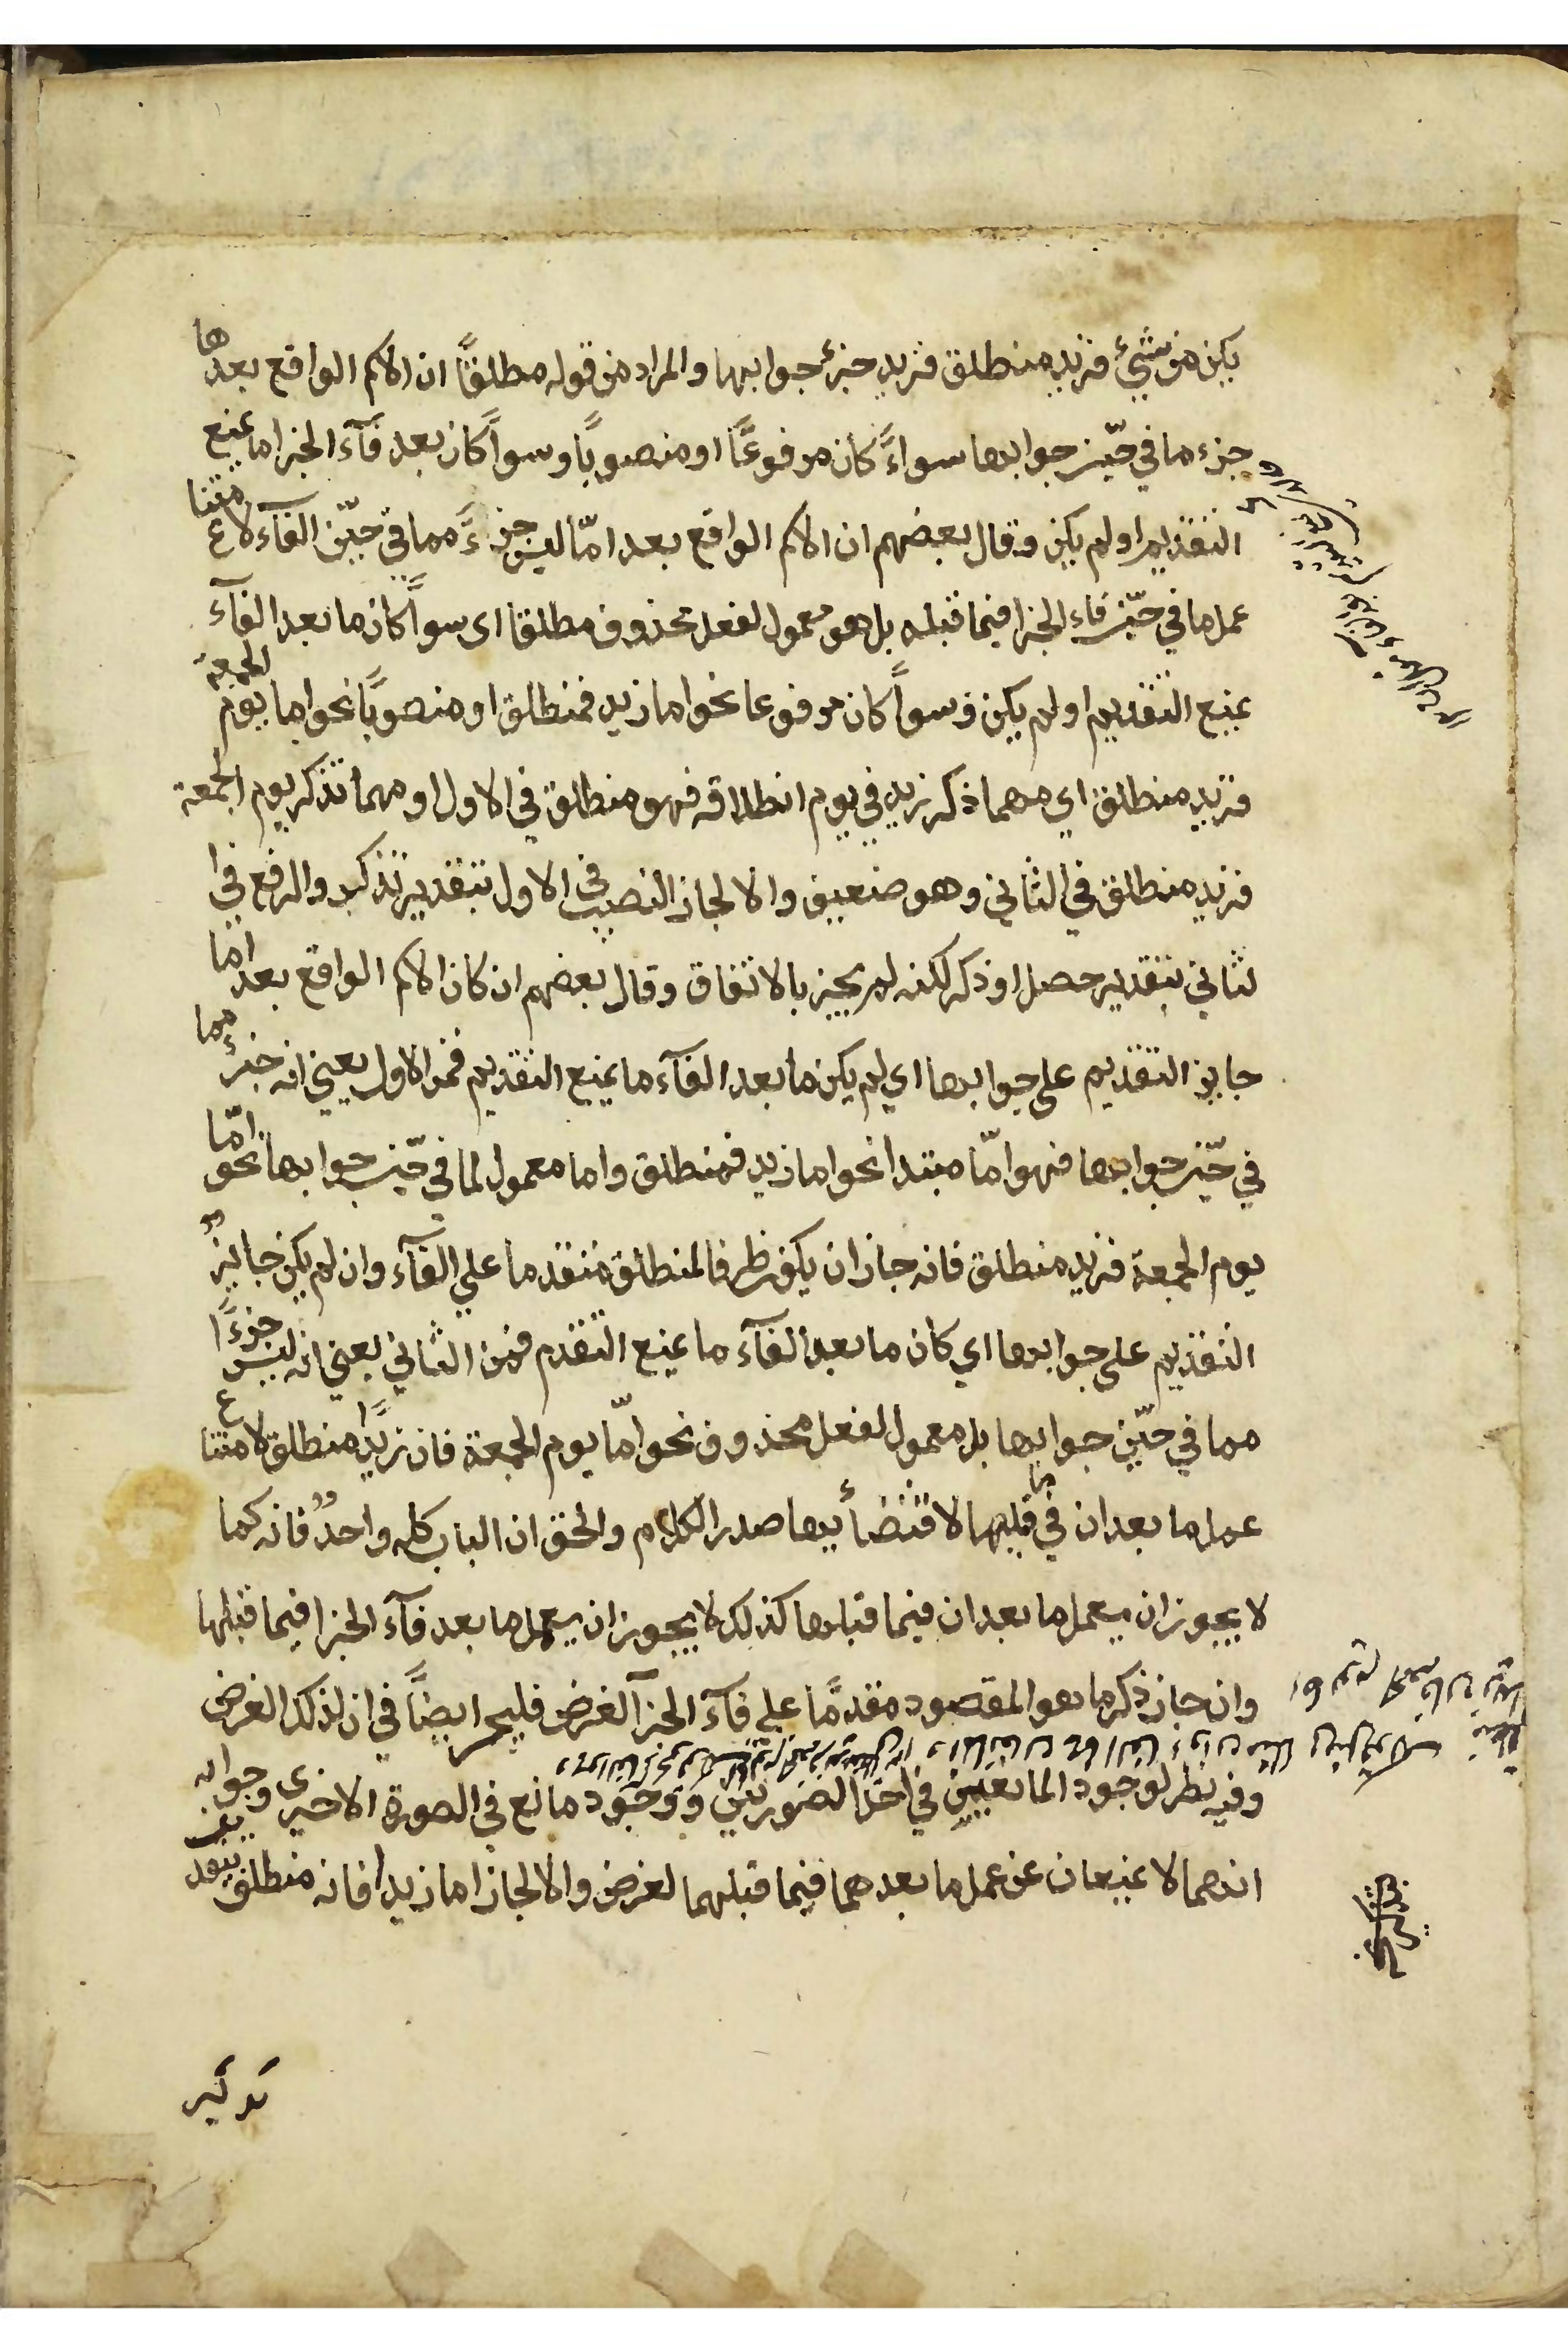 يكن من شيء فزيد منطلق فزيد جزء جوابها والمراد من قوله مطلقًا ان الاسم الواقع بعدها
جزء ما في حيّز جوابها سواءً كان مرفوعًا او منصوبًا وسواً كان بعد فآء الجزا ما يمنع
التقديم او لم يكن وقال بعضهم ان الاسم الواقع بعد امّا ليس جزءً مما في حيّز الفآء لامتناع
عمل ما في حيّز فاء الجزا فيما قبله بل هو معمول لفعل محذوف مطلقا اى سواً كان ما بعد الفآء
يمنع التقديم او لم يكن وسواً كان مرفوعا نحو اما زيد فمنطلق او منصوبًا نحو اما يوم الجمعة
فزيد منطلق اي مهما ذكر زيد في يوم انطلاقه فهو منطلق في الاول او مهما تذكر يوم الجمعة
فزيد منطلق في الثاني وهو ضعيف والا لجاز النصب في الاول بتقدير تذكر والرفع في ا
لثاني بتقدير حصل او ذكر لكنه لم يجز بالاتفاق وقال بعضهم ان كان الاسم الواقع بعد امّا
جايز التقديم على جوابها اي لم يكن ما بعد الفآء ما يمنع التقديم فمن الاول يعني انه جزء مما
في حيّز جوابها فهو امّا مبتدا نحو اما زيد فمنطلق واما معمول لما في حيّز جوابها نحو امّا
يوم الجمعة فزيد منطلق فانه جاز ان يكون ظرفا لمنطلق متقدما علي الفآء وان لم يكن جايز
التقديم على جوابها اي كان ما بعد الفآء ما يمنع التقدم فمن الثاني يعني انه ليس جزءًا
مما في حيّز جوابها بل معمول لفعل محذوف نحو امّا يوم الجمعة فان زيدًا منطلق لامتناع
عمل ما بعد ان فيما قبلها لاقتضائها صدر الكلام والحق ان الباب كله واحد فانه كما
لا يجوز ان يعمل ما بعد ان فيما قبلها كذلك لا يجوز ان يعمل ما بعد فآء الجزا فيما قبلها
وان جاز ذكر ما هو المقصود مقدمًا علي فآء الجزآ لغرض فليجز ايضًا في ان لذلك الغرض
وفيه نظر لوجود المانعين في احد الصورتين ووجود مانع في الصورة الاخيرى وجوابه
انهما لا يمنعان عن عمل ما بعدهما فيما قبلهما لغرض والا لجاز اما زيدا فانه منطلق